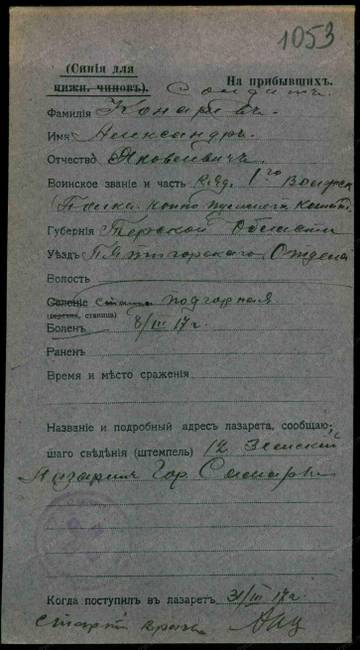 1053
(Синія для
нижн. чиновъ). Солдатъ.
На прибывшихъ.
Фамилія
Имя Александръ.
Отчество Яковлевичъ.
Воинское званіе и часть Ряд. 1го
Губернія Терской Области
Уѣздъ Пятигорскаго Отдела
Волость
Селеніе Подгорная
(деревня, станица)
Боленъ 8/III 17 г.
Раненъ
Время и мѣсто сраженія
Названіе и подробный адресъ лазарета, сообщаю-
шаго свѣдѣнія (штемпель) 12 Земскій
Лазаретъ Гор. Самары
Когда поступилъ въ лазаретъ 31/III 17 г.
старшій врачъ